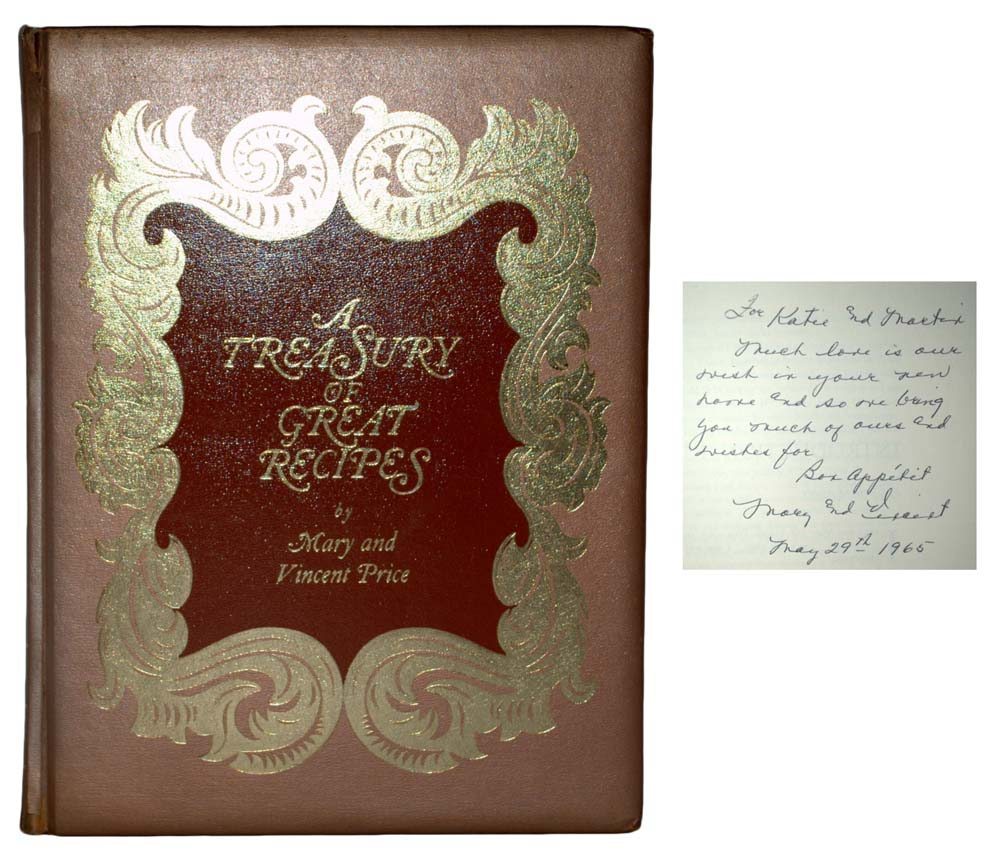 A
TREASURY
OF
GREAT
RECIPES
by
Mary and
Vincent Price
For Katie and Martin
Much love is our
wish in your new
home and so we bring
you much of ours and
wishes for
Bon Appétit
Mary and Vincent
May 29th 1965